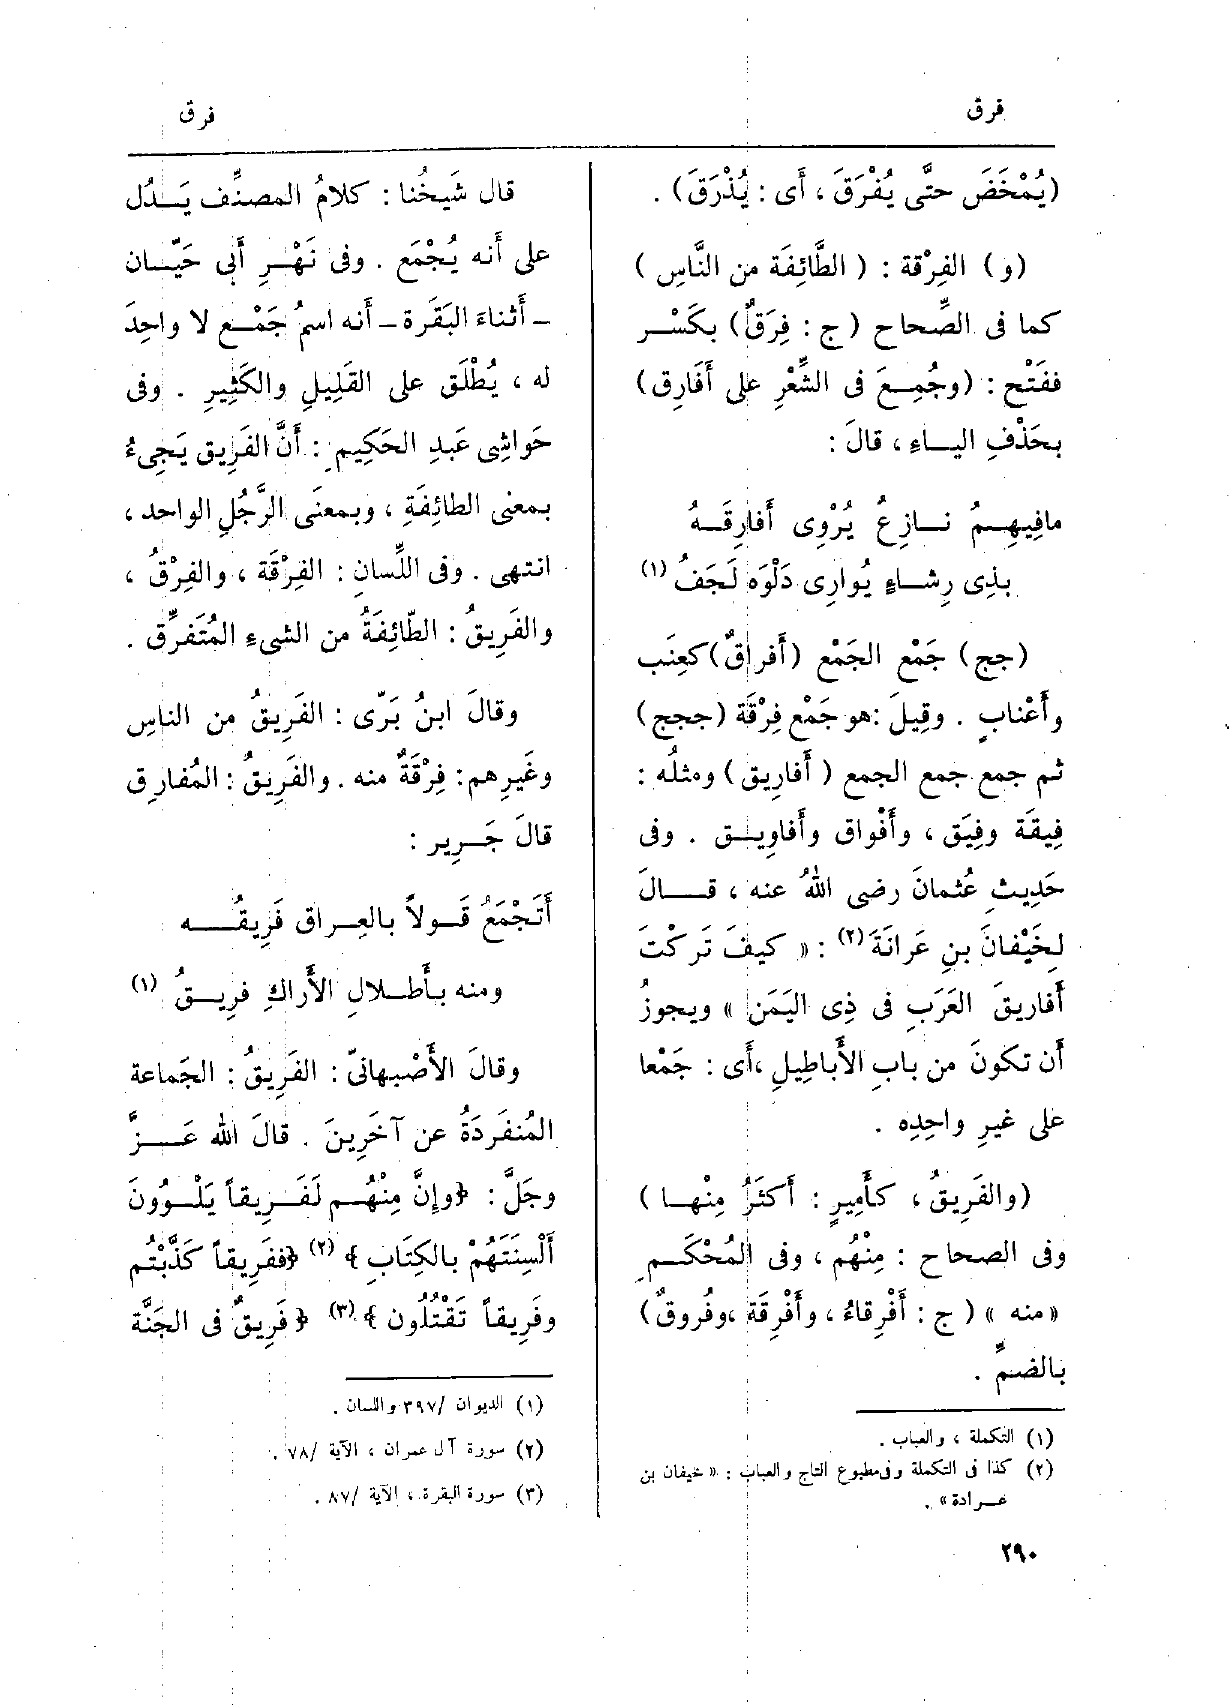 فرق
فرق
(يُمْخَضَ حتَّى يُفْرَقَ ، أَى : يُذْرَقَ) .
(و) الفِرْقة : ( الطَّائِفَة من النَّاسِ )
كما فى الصِّحاح ( ج : فِرَقٌ) بكَسْـر
ففَتْح : (وجُمِـعَ فى الشِّعْرِ على أَفَارِق)
بحَذْفِ اليـاءِ ، قالَ :
مافِيهِـمُ نـازِعٌ يُرْوِى أَفارِقَـهُ
بذِى رِشـاءٍ يُوارِى دَلْوَه لَجَفُ (١)
(جج) جَمْع الجَمْع (أَفراقٌ) كعِنَب
وأَعْنابٍ . وقِيلَ : هو جَمْع فِرْقَة (ججج)
ثم جمع جمع الجمع ( أَفارِيق ) ومثلُه :
فِيقَة وفِيَق ، وأَفْواق وأَفاوِيـق . وفى
حَدِيثِ عُثمانَ رضى اللهُ عنه ، قـــالَ
لِخَيْفانَ بنِ عَرانَةَ (٢) : « كيفَ تَركْتَ
أَفاريقَ العَرَبِ فى ذِى اليَمَن » ويجوزُ
أَن تكونَ من بابِ الأَباطِيلِ ، أَى : جَمْعا
على غيرِ واحِدِه .
(والفَرِيقُ ، كأَمِيرٍ : أَكثَرُ مِنْهـا )
وفى الصحاح : مِنْهُم ، وفى المُحْكَـمِ
« منه » ( ج : أَفْرِقاءُ ، وأَفْرِقَة ، وفُروقٌ)
بالضمِّ .
(١) التكملة ، والعباب .
(٢) كذا فى التكملة وفى مطبوع التاج والعباب : « خيفان بن
عـرادة » .
قال شَيخُنا : كلامُ المصنِّف يَـدُل
على أَنه يُجْمَع . وفى نَهْـرِ أَبى حَيّـان
ــ أَثناءَ البَقَرة ــ أَنه اسمُ جَمْـع لا واحِدَ
له ، يُطْلَق على القَلِيلِ والكَثِيرِ . وفى
حَواشِى عَبدِ الحَكِيم : أَنَّ الفَرِيق يَجِىءُ
بمعنى الطائِفَةِ ، وبمعنَى الرَّجُلِ الواحد ،
انتهى . وفى اللِّسانِ : الفِرْقَة ، والفِرْقُ ،
والفَرِيقُ : الطّائِفَةُ من الشىءِ المُتَفرِّق .
وقالَ ابنُ بَرّى : الفَرِيقُ من الناسِ
وغَيرِهم : فِرْقَةٌ منه . والفَرِيقُ : المُفارِق
قالَ جَـرِير :
أَتَجْمَعُ قَـولاً بالعِـراق فَرِيقُـــه
ومنه بأَطْـلالِ الأَراكِ فرِيـقُ (١)
وقالَ الأَصْبهانىّ : الفَرِيقُ : الجَماعة
المُنفَرِدَةُ عن آخَرِينَ . قالَ الله عَـــزَّ
وجَلَّ : ﴿وإِنَّ مِنْهُـم لَفَـرِيقاً يَلْـوُونَ
أَلْسِنَتَهُمْ بالكِتَابِ ﴾ (٢) ﴿ففَرِيقاً كَذَّبْتُم
وفَرِيقاً تَقْتُلُون ﴾ (٣) ﴿ فَرِيقٌ فى الجَنَّة
(١) الديوان /٣٩٧ واللسان .
(٢) سورة آل عمران ، الآية /٧٨ .
(٣) سورة البقرة ، الآية /٨٧ .
٢٩٠